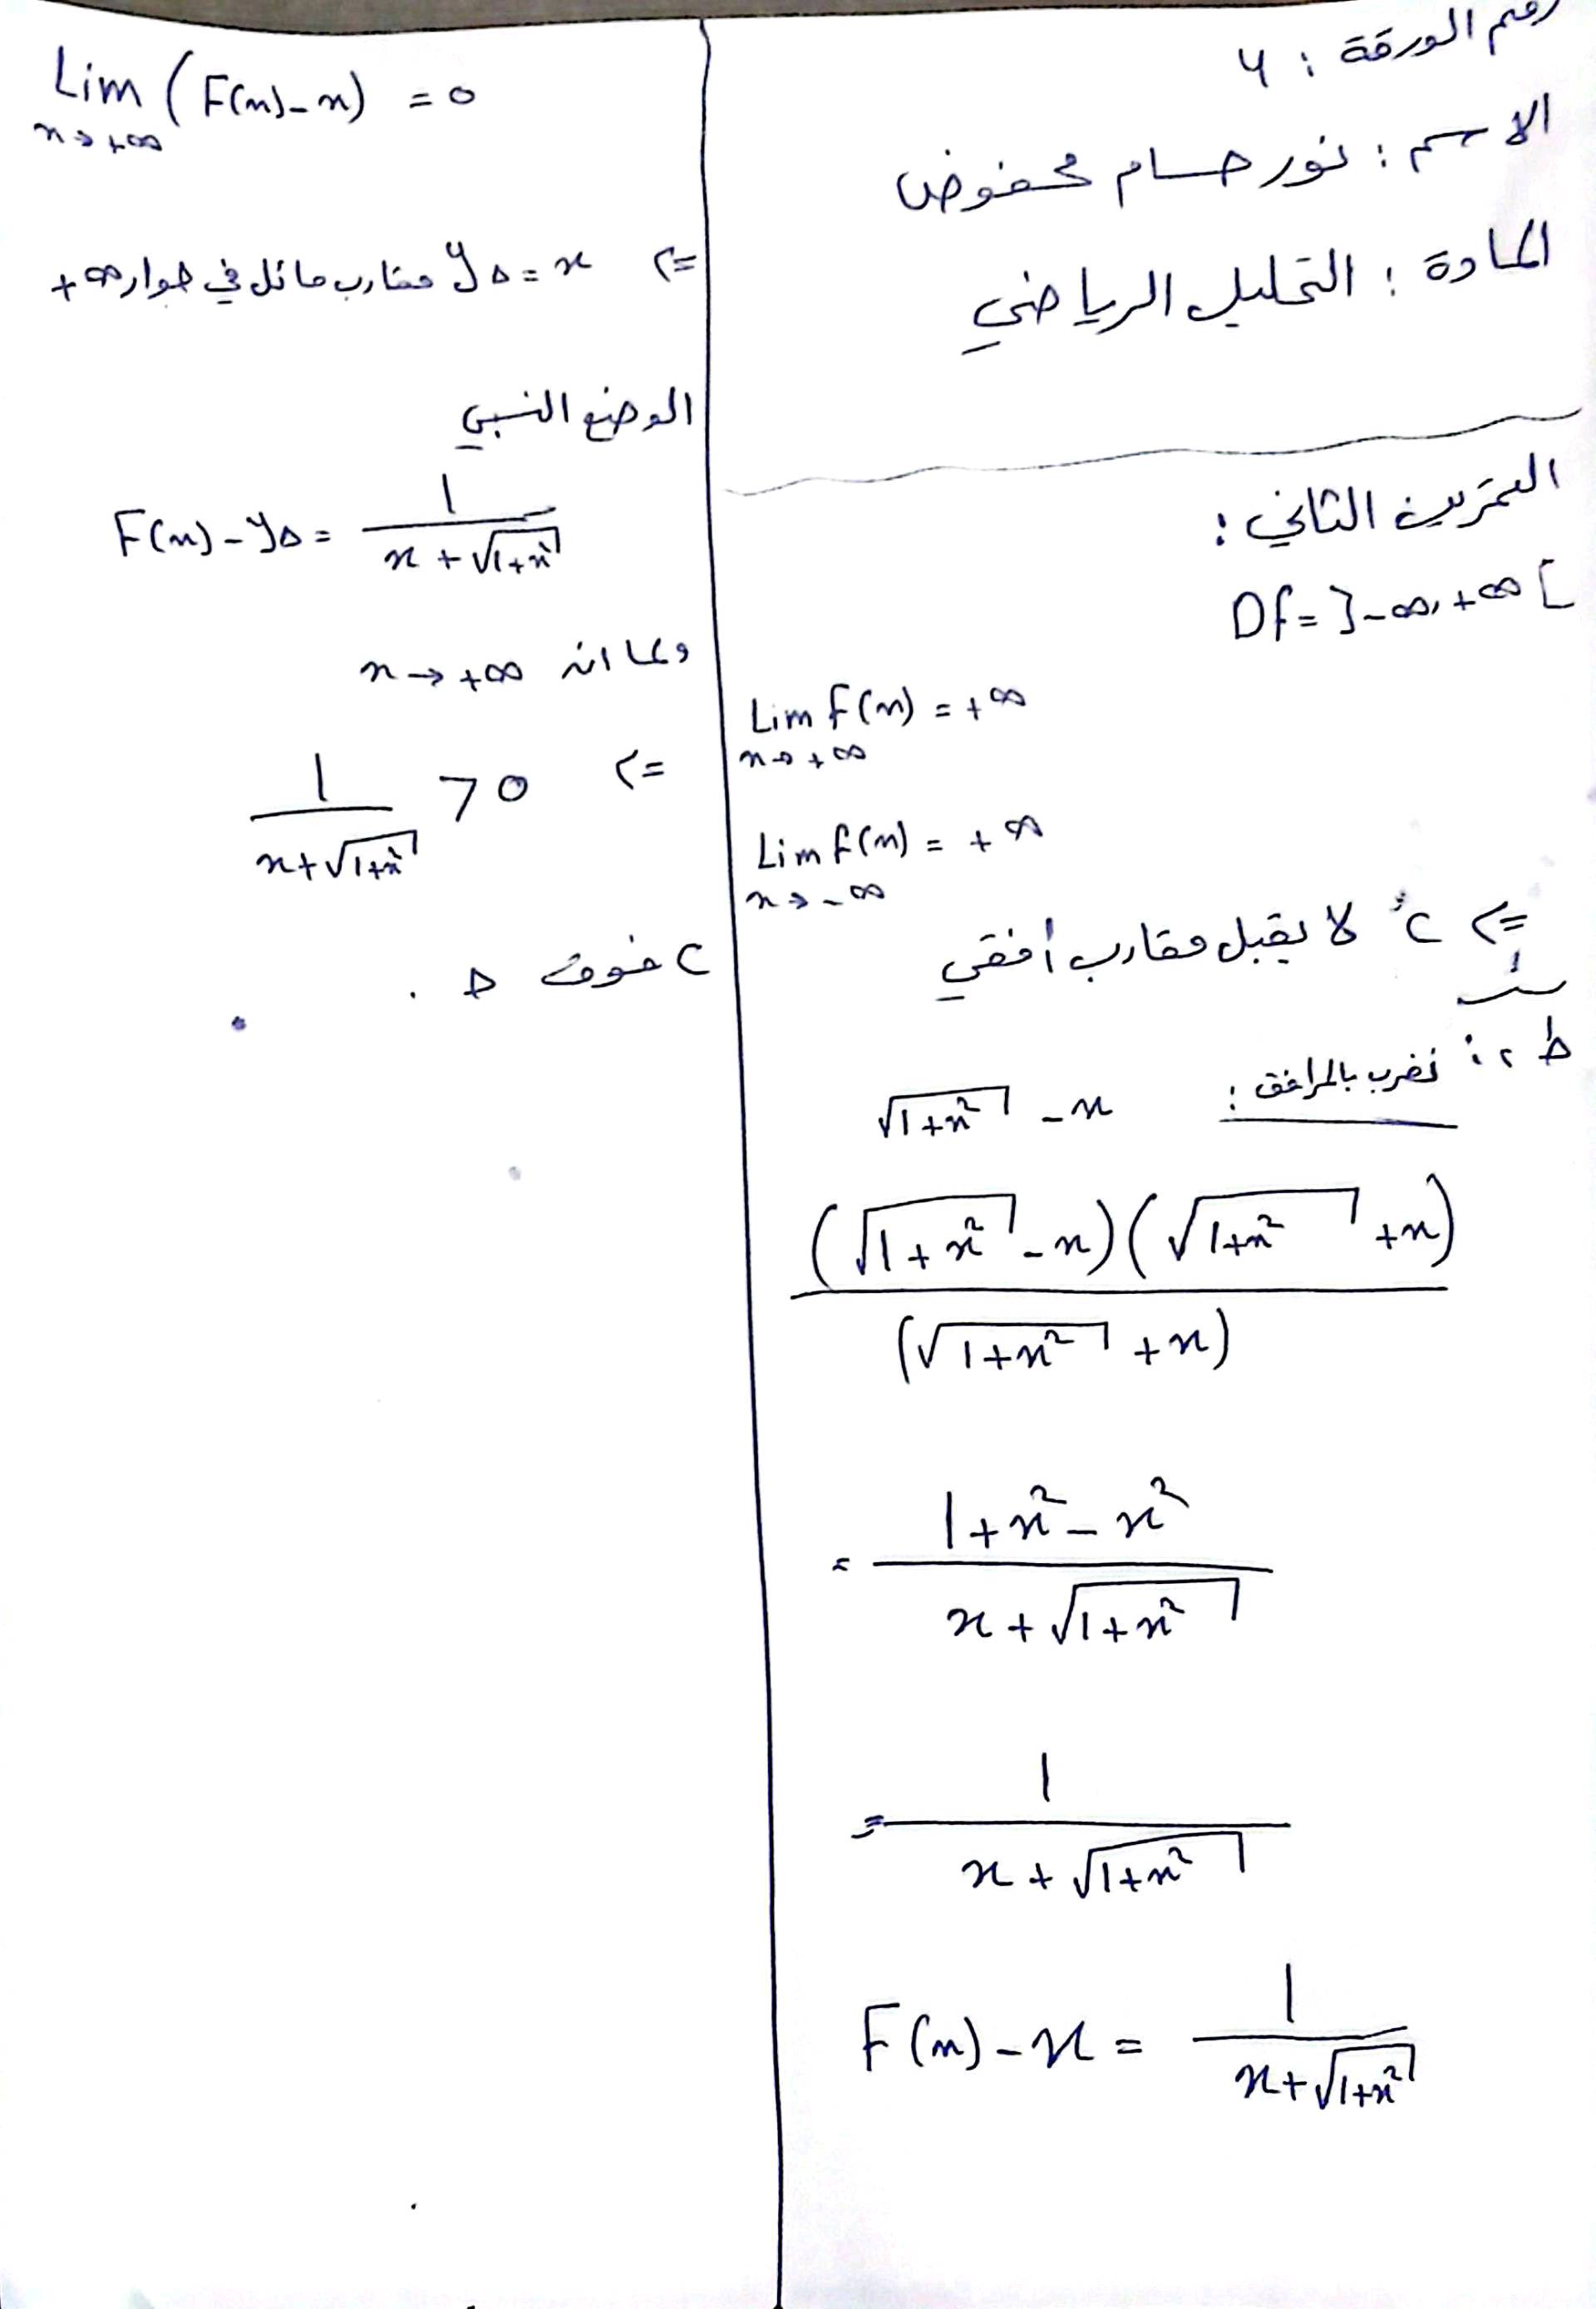 رقم الورقة : 4
الاسم : نور حسام محفوض
المادة : التحليل الرياضي
التمرين الثاني :
Df = ]-∞, +∞[
Lim f(x) = +∞
x→+∞
Lim f(x) = +∞
x→-∞
=> C لا يقبل مقارب أفقي
ط2: نضرب بالمرافق : √(1+x²) - x
(√(1+x²) - x)(√(1+x²) + x)
(√(1+x²) + x)
= (1+x² - x²) / (x + √(1+x²))
= 1 / (x + √(1+x²))
F(x) - x = 1 / (x + √(1+x²))
Lim (F(x) - x) = 0
x→+∞
=> yΔ = x مقارب مائل في جوار +∞
الوضع النسبي
F(x) - yΔ = 1 / (x + √(1+x²))
وبما انه x → +∞
=> 1 / (x + √(1+x²)) > 0
C فوق Δ .